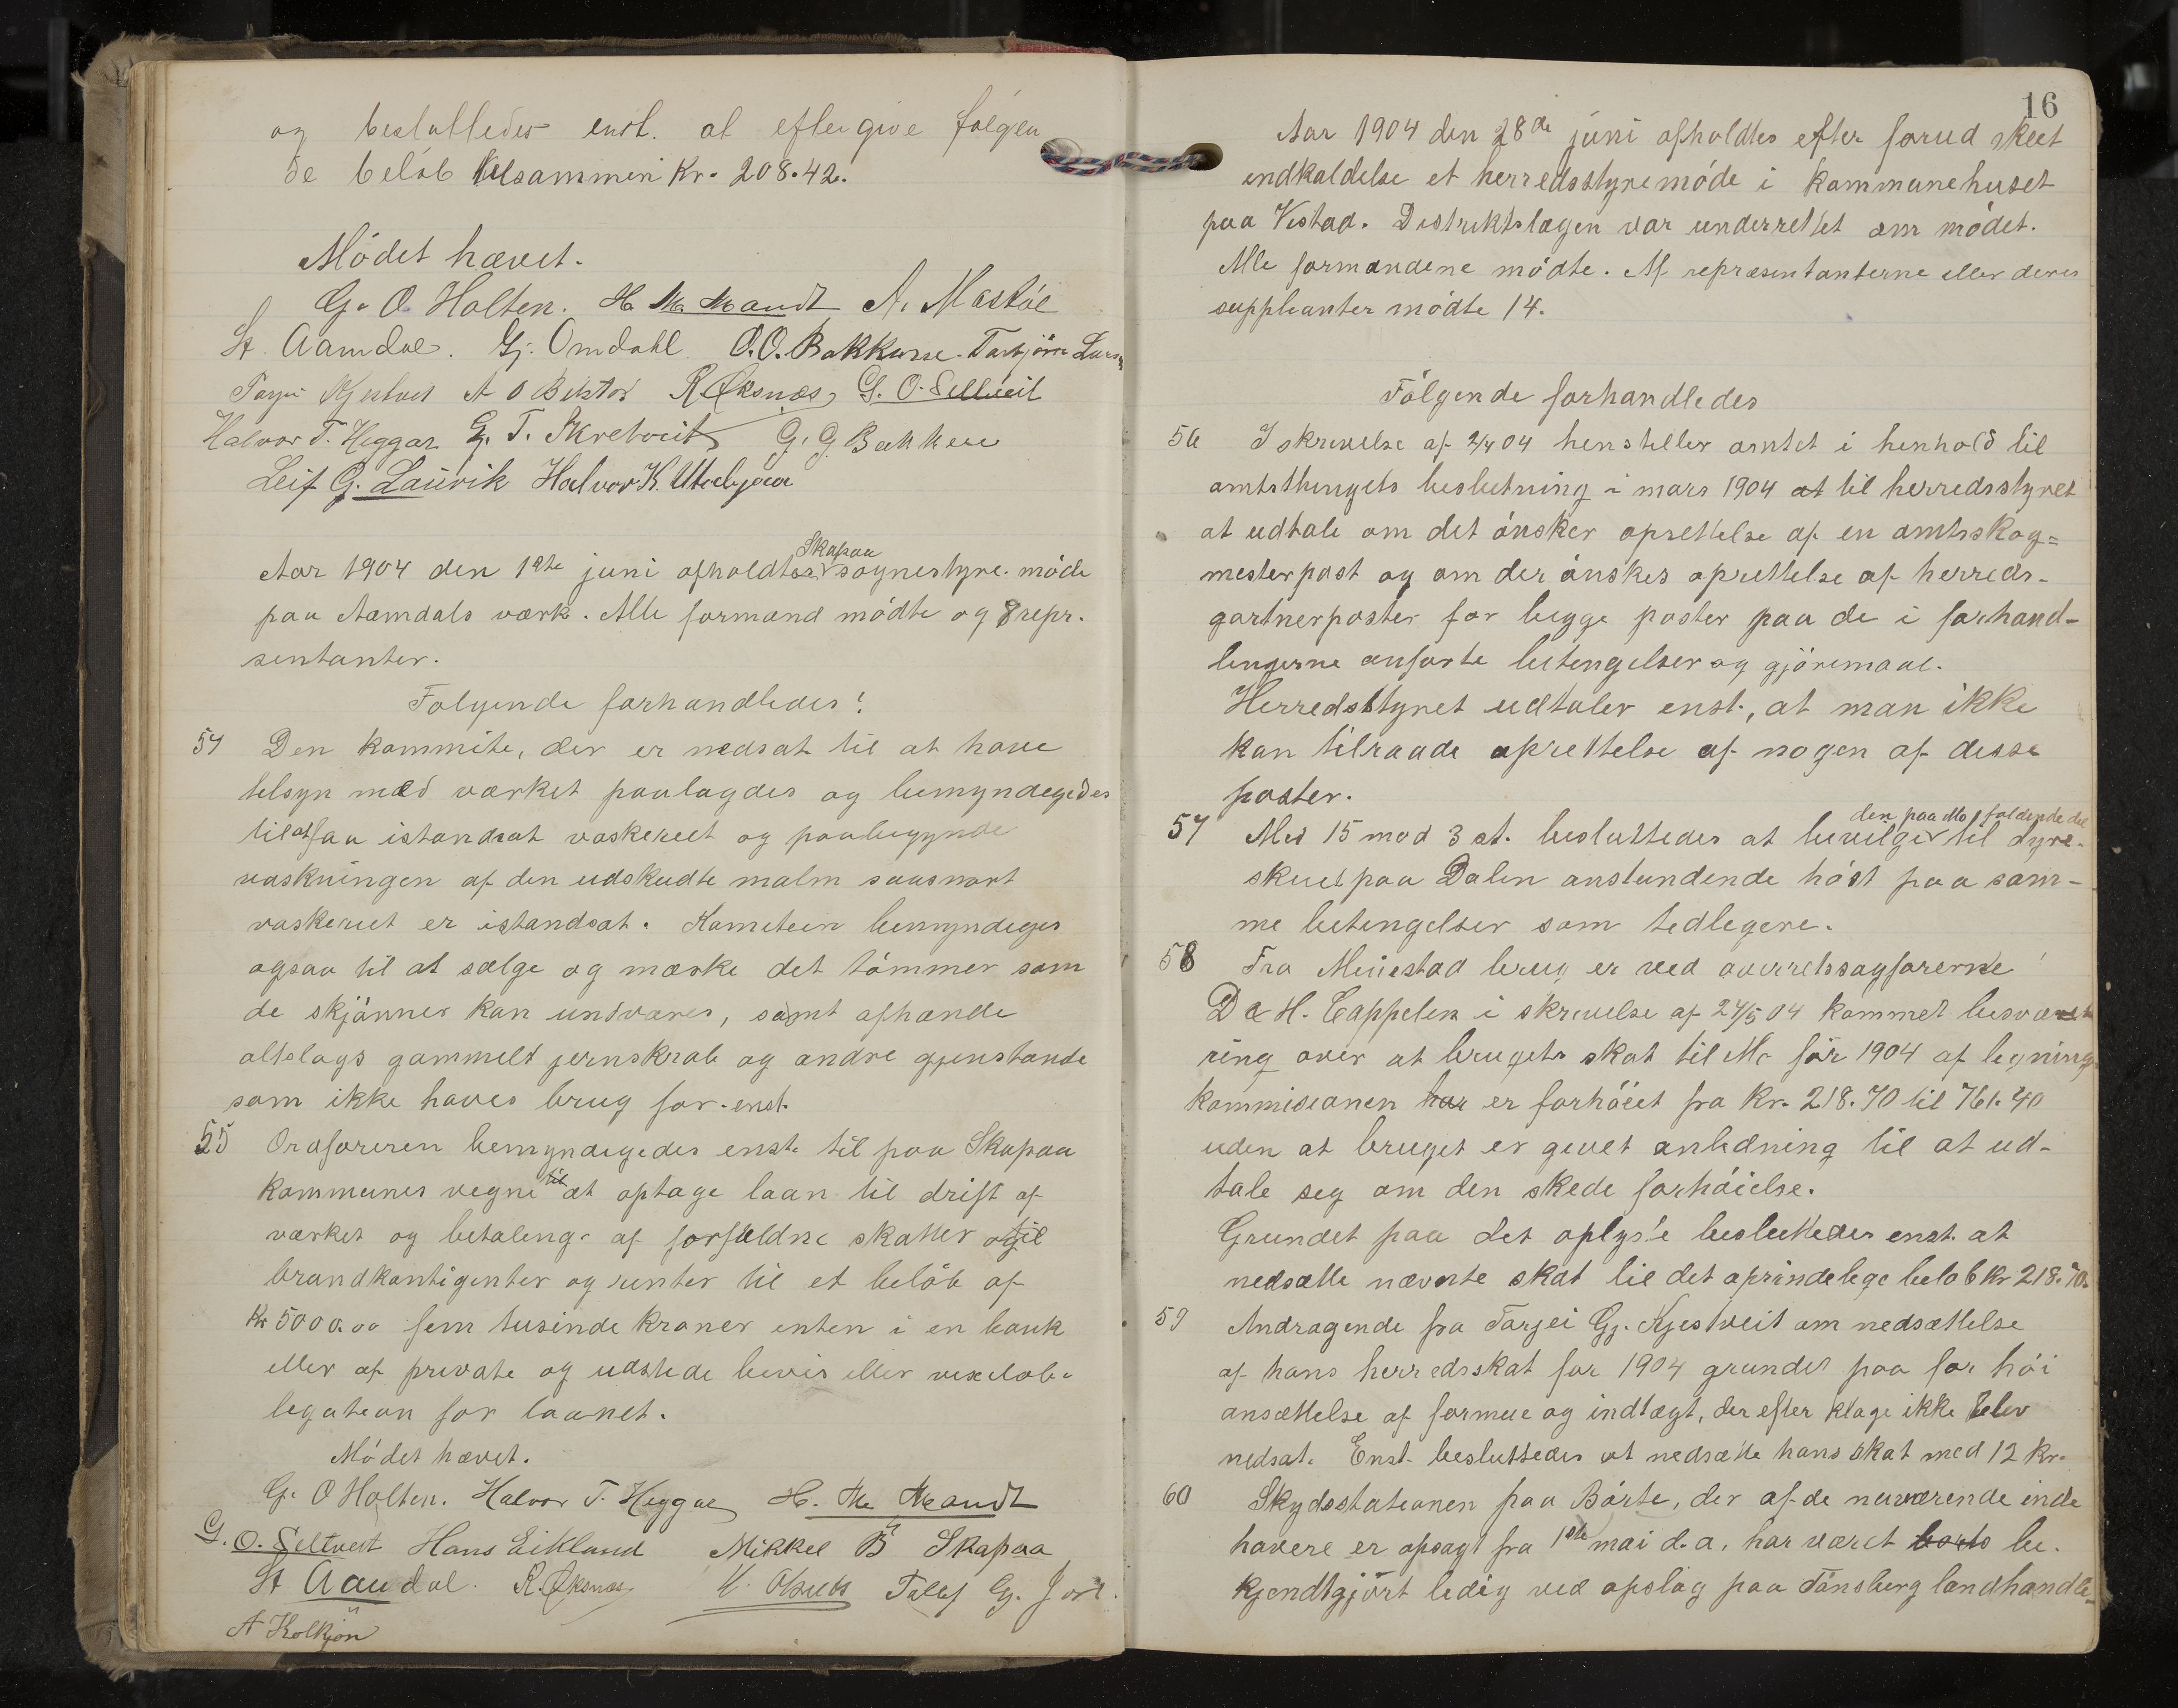 og besluttedes enst. at eftergive følgen
de beløb tilsammen Kr. 208.42.
Mödet hævet.
G. O. Holten. H. M. Mandt A. Mastöl
St. Aamdal. Gj. Omdahl O.O. Bakkune. Tarbjörn Lars
A O R. Øksnæs, G. O. Seltveit
Halvor T. Heggar G. T. Skretveit G. G. Bakken
Leif G. Lauvik Halvor K.
Skapaa
Aar 1904 den 1ste juni afholdtes sognestyre. möde
paa Aamdals værk. Alle formænd mödte og 8 repr.
sentanter.
Følgende forhandledes!
54 Den kommite, der er nedsat til at have
tilsyn med værket paalagdes og bemyndigedes
til at faa istandsat vaskeriet og paabegynde
vaskningen af den udskudte malm saasnart
vaskeriet er istandsat. Komiteen bemyndiges
ogsaa til at sælge og mærke det tömmer som
de skjönner kan undværes, samt afhænde
altslags gammelt jernskrab og andre gjenstande
som ikke haves brug for. enst.
55 Ordföreren bemyndigedes enst. til paa Skapaa
kommunes vegne til at optage laan til drift af
værket og betaling af forfaldne skatter og til
brandkontigenter og renter til et belöb af
Kr 5000.00 fem tusinde kroner enten i en bank
eller af private og udstede bevis eller vexelob-
legation for laanet.
Mödet hævet.
G. O Holten. Halvor T. Heggar H. M. Mandt
G. O. Seltveit Hans Eikland Mikkel B Skapaa
St Aamdal. R. Øksnæs Talef G. Jore.
A Kolkjön
16
Aar 1904 den 28de juni afholdtes efter forud skeet
indkaldelse et herredsstyremöde i kommunehuset
paa Vistad. Distriktslægen var underrettet om mödet.
Alle formændene mödte. Af repræsentanterne eller deres
suppleanter mödte 14.
Fölgende forhandledes
56 I skrivelse af 2/4 04 henstiller amtet i henhold til
amtsthingets beslutning i mars 1904 at til herredsstyret
at udtale om det önsker oprettelse af en amtsskog=
mesterpost og om der önskes oprettelse af herreds-
gartnerposter for begge poster paa de i forhand-
lingerne anförte betingelser og gjöremaal.
Herredsstyret udtaler enst., at man ikke
kan tilraade oprettelse af nogen af disse
poster.
den paa Mo faldende del
57 Med 15 mod 3 st. besluttedes at bevilge til dyre-
skuet paa Dalen anstundende höst paa sam-
me betingelser som tidligere.
58 Fra Meiestad brug er ved overretssagförerne
D & H. Cappelen i skrivelse af 27/5 04 kommet besvæ
ring over at brugets skat til Mo för 1904 af ligning
kommisionen har er forhöiet fra Kr. 218.70 til 761.40
uden at bruget er givet anledning til at ud-
tale seg om den skede forhöielse.
Grundet paa det oplyste besluttedes enst. at
nedsætte nævnte skat til det oprindelige belöb Kr 218.70.
59 Andragende fra Tarjei Gj. Kjestveit om nedsættelse
af hans herredsskat for 1904 grundet paa for höi
ansættelse af formue og indtægt, der efter klage ikke blev
nedsat. Enst. besluttedes at nedsætte hans skat med 12 kr.
60 Skydsstationen paa Börte, der af de nuværende inde
havere er opsagt fra 1ste mai d. a. har været borts be-
kjendtgjört ledig ved opslag paa Tönsberg landhandle-